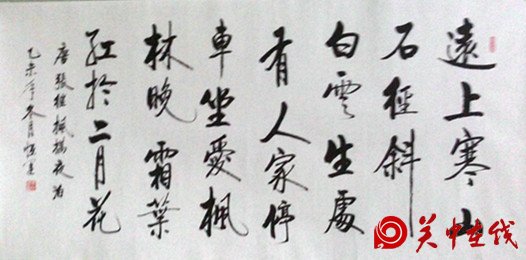 遠上寒山
石徑斜
白雲生處
有人家停
車坐愛楓
林晚霜葉
紅於二月花
唐張继楓橋夜泊
乙未年冬月
关中在线